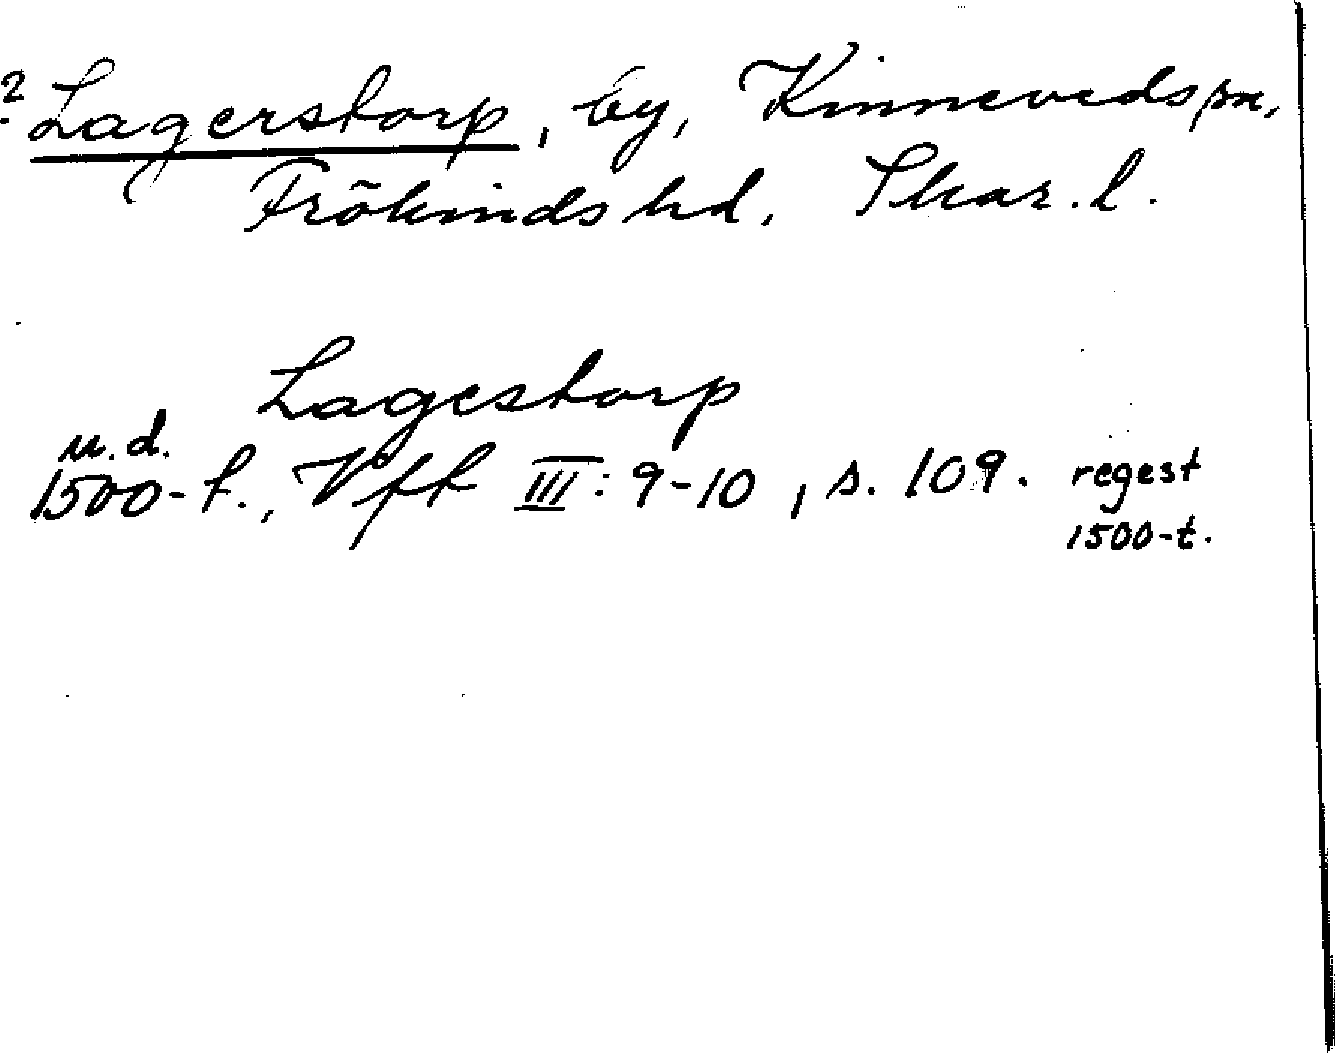 ? Lagerstorp, by, Kinneveds sn,
Frökinds hd, Skar. l.
Lagestorp
u.d.
1500-t., Vft III: 9-10, s. 109. regest
1500-t.